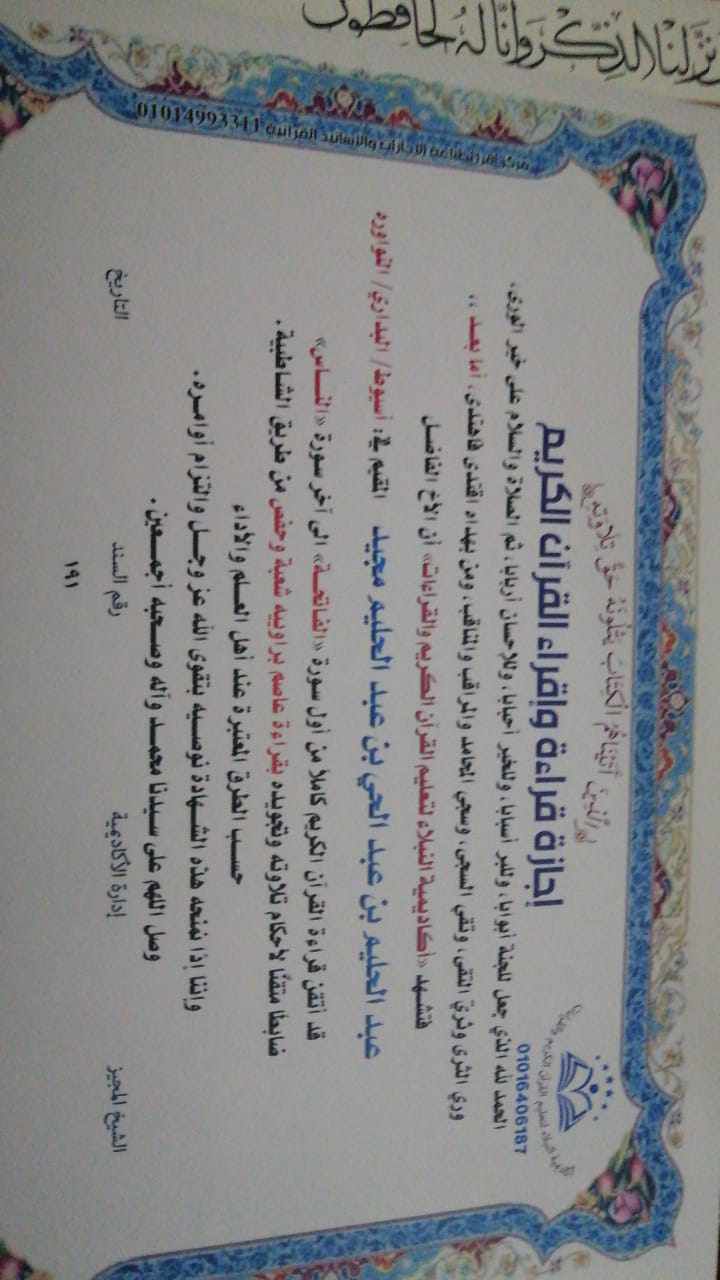 نزلنا الذكر وإنا له لحافظون
مركز اقرأ لطباعة الإجازات والأسانيد القرآنية 01014993311
﴿الَّذِينَ آتَيْنَاهُمُ الْكِتَابَ يَتْلُونَهُ حَقَّ تِلَاوَتِهِ﴾
إجازة قراءة وإقراء القرآن الكريم
01016406187
الحمد لله الذي جعل للجنة أبوابا، وللبر أسبابا، وللخير أحبابا، وللإحسان أربابا، ثم الصلاة والسلام على خير الورى،
وري الثرى وثري التقى، وتقي السجى، وسجي المحامد والمراقب والمناقب، ومن بهداه اقتدى فاهتدى، أما بعد ،،
فتشهد «أكاديمية النبلاء لتعليم القرآن الكريم والقراءات» أن الأخ الفاضل
عبد الحليم بن عبد الحي بن عبد الحليم مجيد المقيم في: أسيوط/ البداري/ النواوره
قد أتقن قراءة القرآن الكريم كاملا من أول سورة «الفاتحة» الى آخر سورة «الناس»
ضابطًا متقنًا لأحكام تلاوته وتجويده بقراءة عاصم براوييه شعبة وحفص من طريق الشاطبية.
حسب الطرق المعتبرة عند أهل العلم والأداء
وإننا إذا نمنحه هذه الشهادة نوصيه بتقوى الله عز وجل والتزام أوامره.
وصل اللهم على سيدنا محمد وآله وصحبه أجمعين.
الشيخ المجيز إدارة الأكاديمية رقم السند التاريخ
١٩١